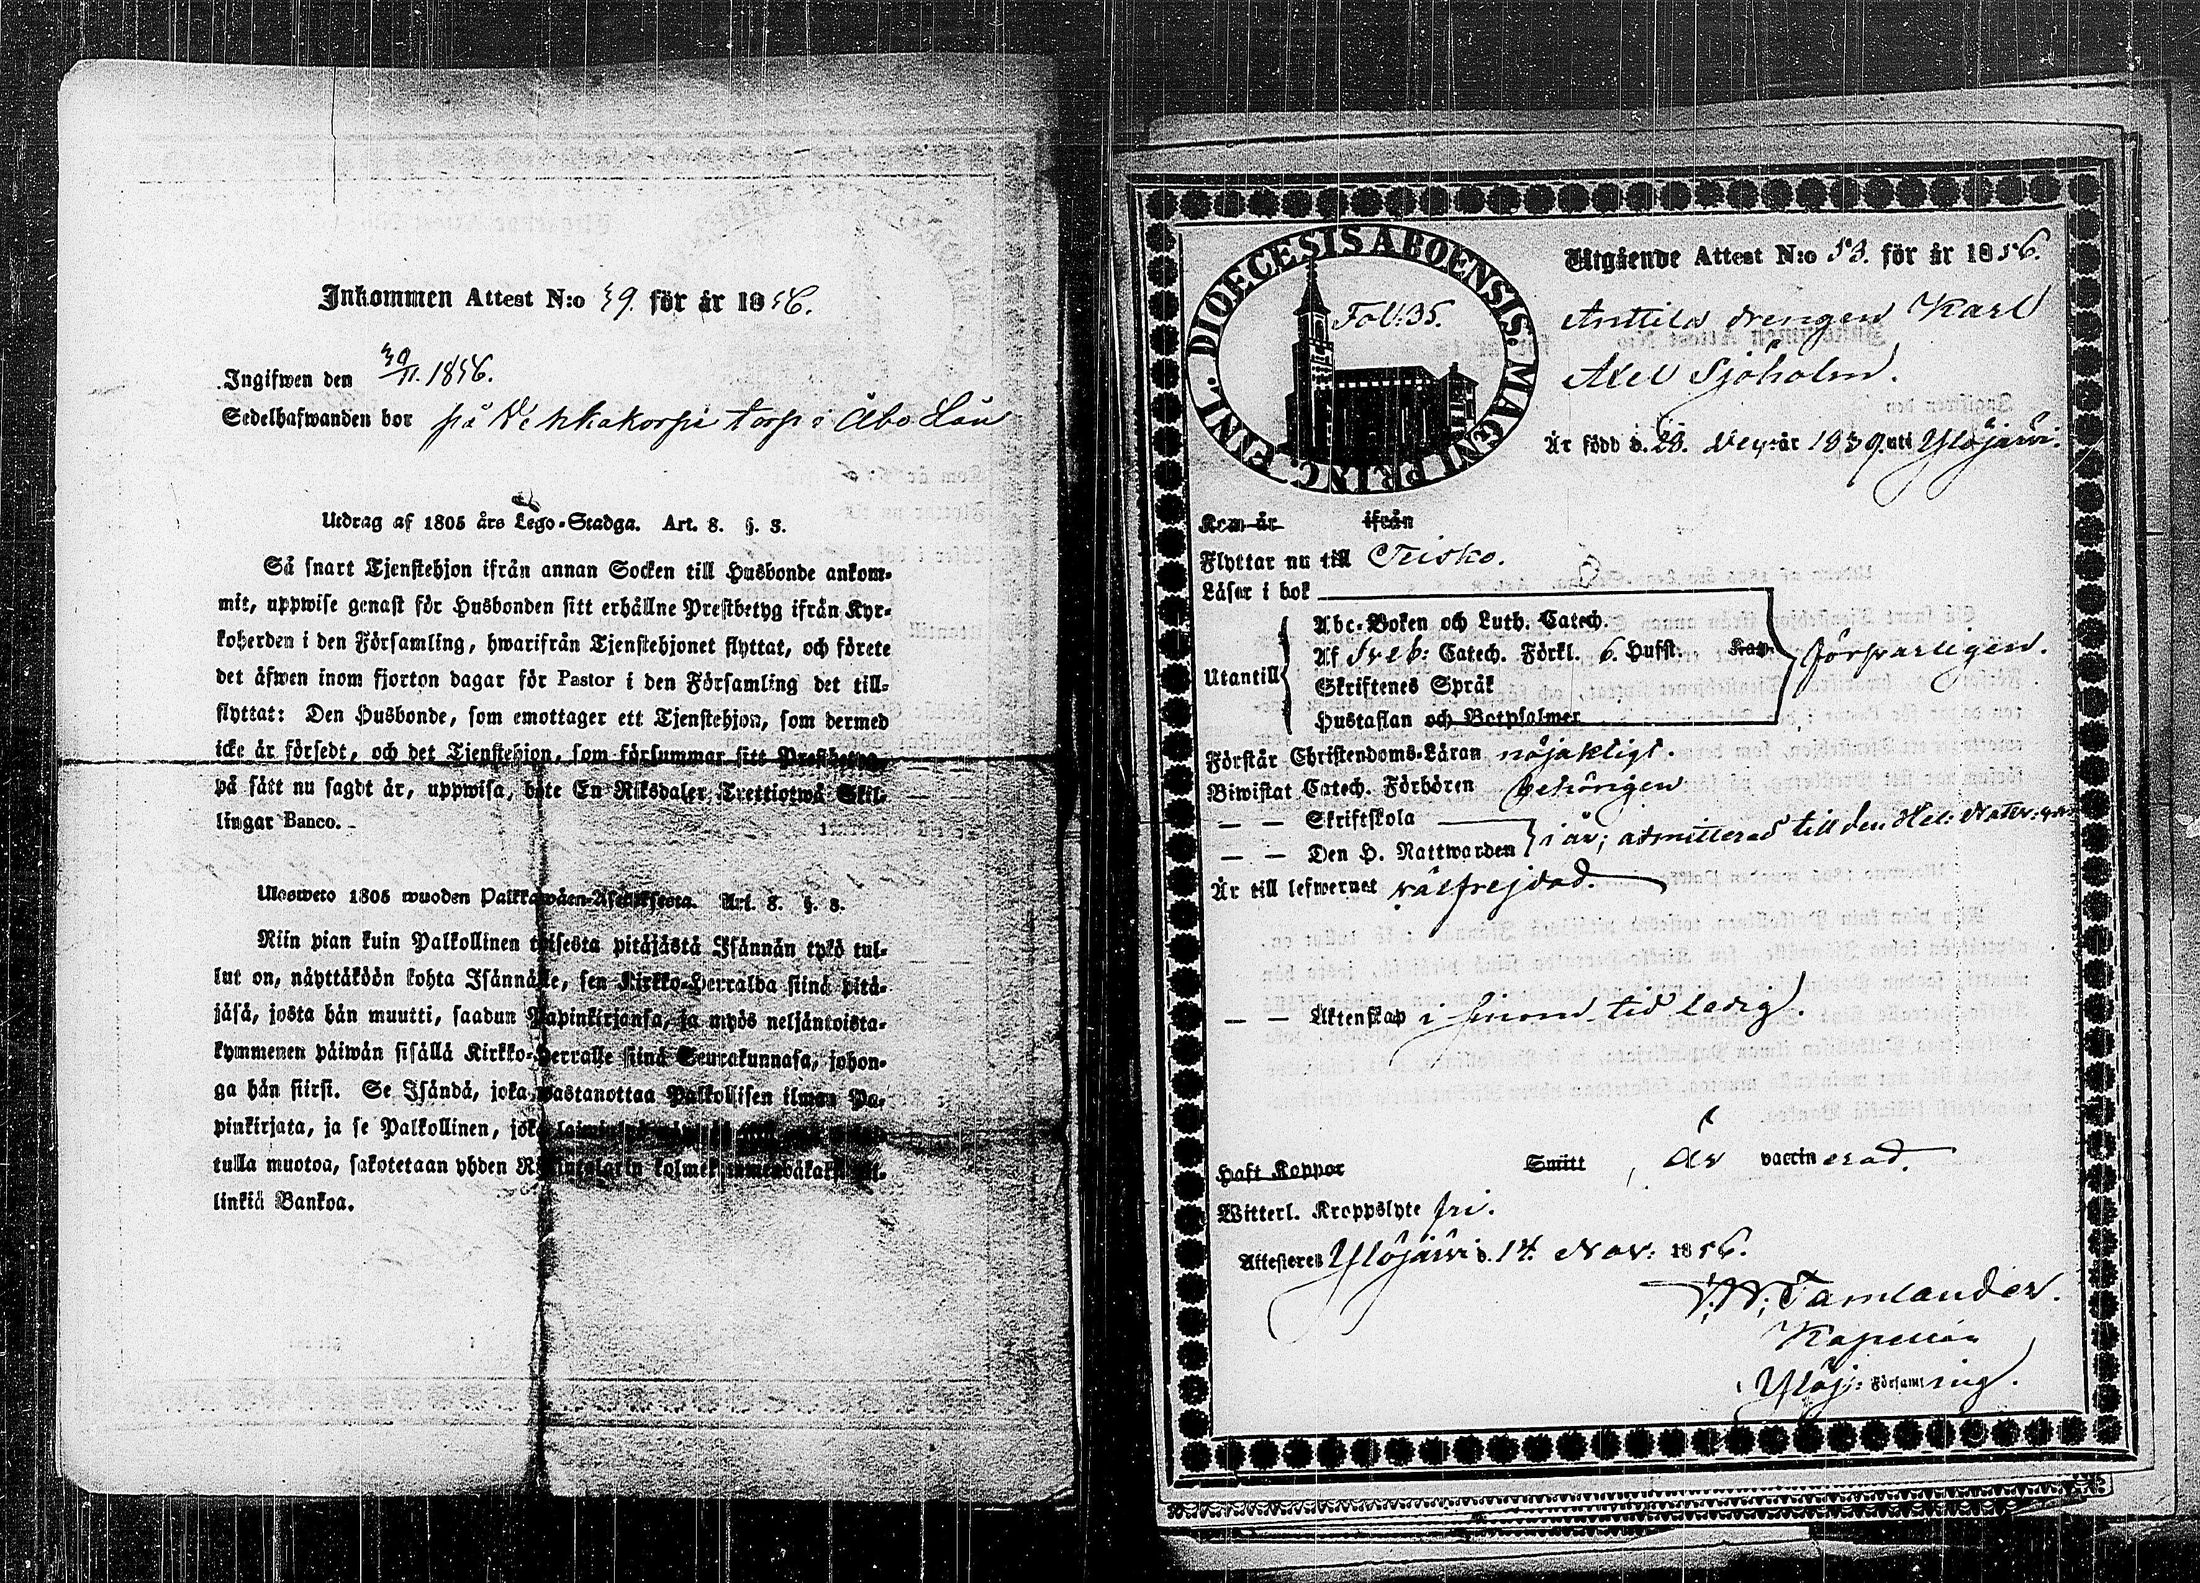 Inkommen Attest N:o 39. för år 1856.
Ingifwen den 30/11. 1856.
Sedelhafwanden bor på torp i Åbo Län
Utdrag af 1805 års Lego-Stadga. Art. 8. §. 3.
Så snart Tjenstehjon ifrån annan Socken till Husbonde ankom-
mit, uppwise genast för Husbonden sitt erhållne Prestbetyg ifrån Kyr-
koherden i den Församling, hwarifrån Tjenstehjonet flyttat, och förete
det äfwen inom fjorton dagar för Pastor i den Församling det till-
flyttat: Den Husbonde, som emottager ett Tjenstehjon, som dermed
icke är försedt, och det Tjenstehjon, som försummar sitt Prestbetyg,
på sätt nu sagdt är, uppwisa, böte En Riksdaler Trettiotwå Skil-
lingar Banco.
Ulosweto 1805 wuoden Palkkawäen-Asetuksesta. Art. 8. §. 3.
Niin pian kuin Palkollinen toisesta pitäjästä Isännän tykö tul-
lut on, näyttäköön kohta Isännälle, sen Kirkko-Herralda siinä pitä-
jäsä, josta hän muutti, saadun Papinkirjansa, ja myös neljäntoista-
kymmenen päiwän sisällä Kirkko-Herralle siinä Seurakunnasa, johon-
ga hän siirsi. Se Isändä, joka wastanottaa Palkollisen ilman Pa-
pinkirjata, ja se Palkollinen, joka
tulla muotoa, sakotetaan yhden kil-
linkiä Bankoa.
DIOECESIS ABOENSIS. MAGNI PRINC. FINL.
Fol: 35.
Utgående Attest N:o 53. för år 1856.
Anttila drengen Karl
Axel Sjöholm.
Är född d. 23. år 1839. uti Ylöjärvi.
Kom år ifrån
Flyttar nu till Teisko.
Läser i bok
Utantill
Abc-Boken och Luth. Catech.
Af Sveb: Catech. Förkl. 6. Hufst. Kap.
Skriftenes Språk
Hustaflan och Botpsalmer
försvarligen.
Förstår Christendoms-Läran nöjaktigt.
Biwistat Catech. Förhören behörigen
— — Skriftskola
— — Den H. Nattwarden i år; admitterad till den Hel: Nattv:
Är till lefwernet välfrejdad.
— — Äktenskap i sinom tid ledig.
Haft Koppor Smitt, är vaccinerad.
Witterl. Kroppslyte fri.
Attesteres Ylöjärvi d. 14. Nov: 1856.
Tamlander.
Kapellan
i Ylöj: Församling.